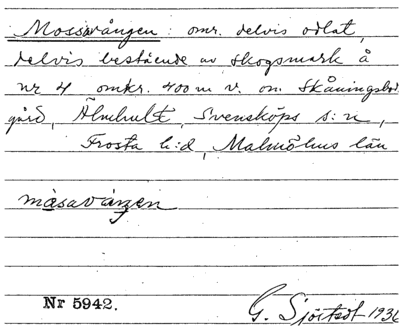 Mossavången: omr. delvis odlat,
delvis bestående av skogsmark å
nr 4 omkr. 400 m v. om Skåningsbod
gård, Älmhult, Svensköps s:n,
Frosta h:d, Malmöhus län
måsavången
Nr 5942.
G. Sjöstedt 1936